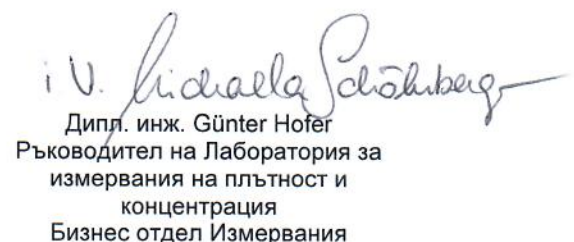 i.V. Michaela
Дипл. инж. Günter Hofer
Ръководител на Лаборатория за
измервания на плътност и
концентрация
Бизнес отдел Измервания